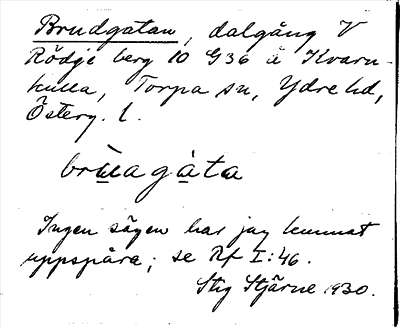 Brudgatan, dalgång V
Rödje berg 10 G36 å Kvarn-
kulla, Torpa sn, Ydre hd,
Österg. l.
brùagàta
Ingen sägen har jag kunnat
uppspåra; se Rf I:46.
Stig Stjärne 1930.